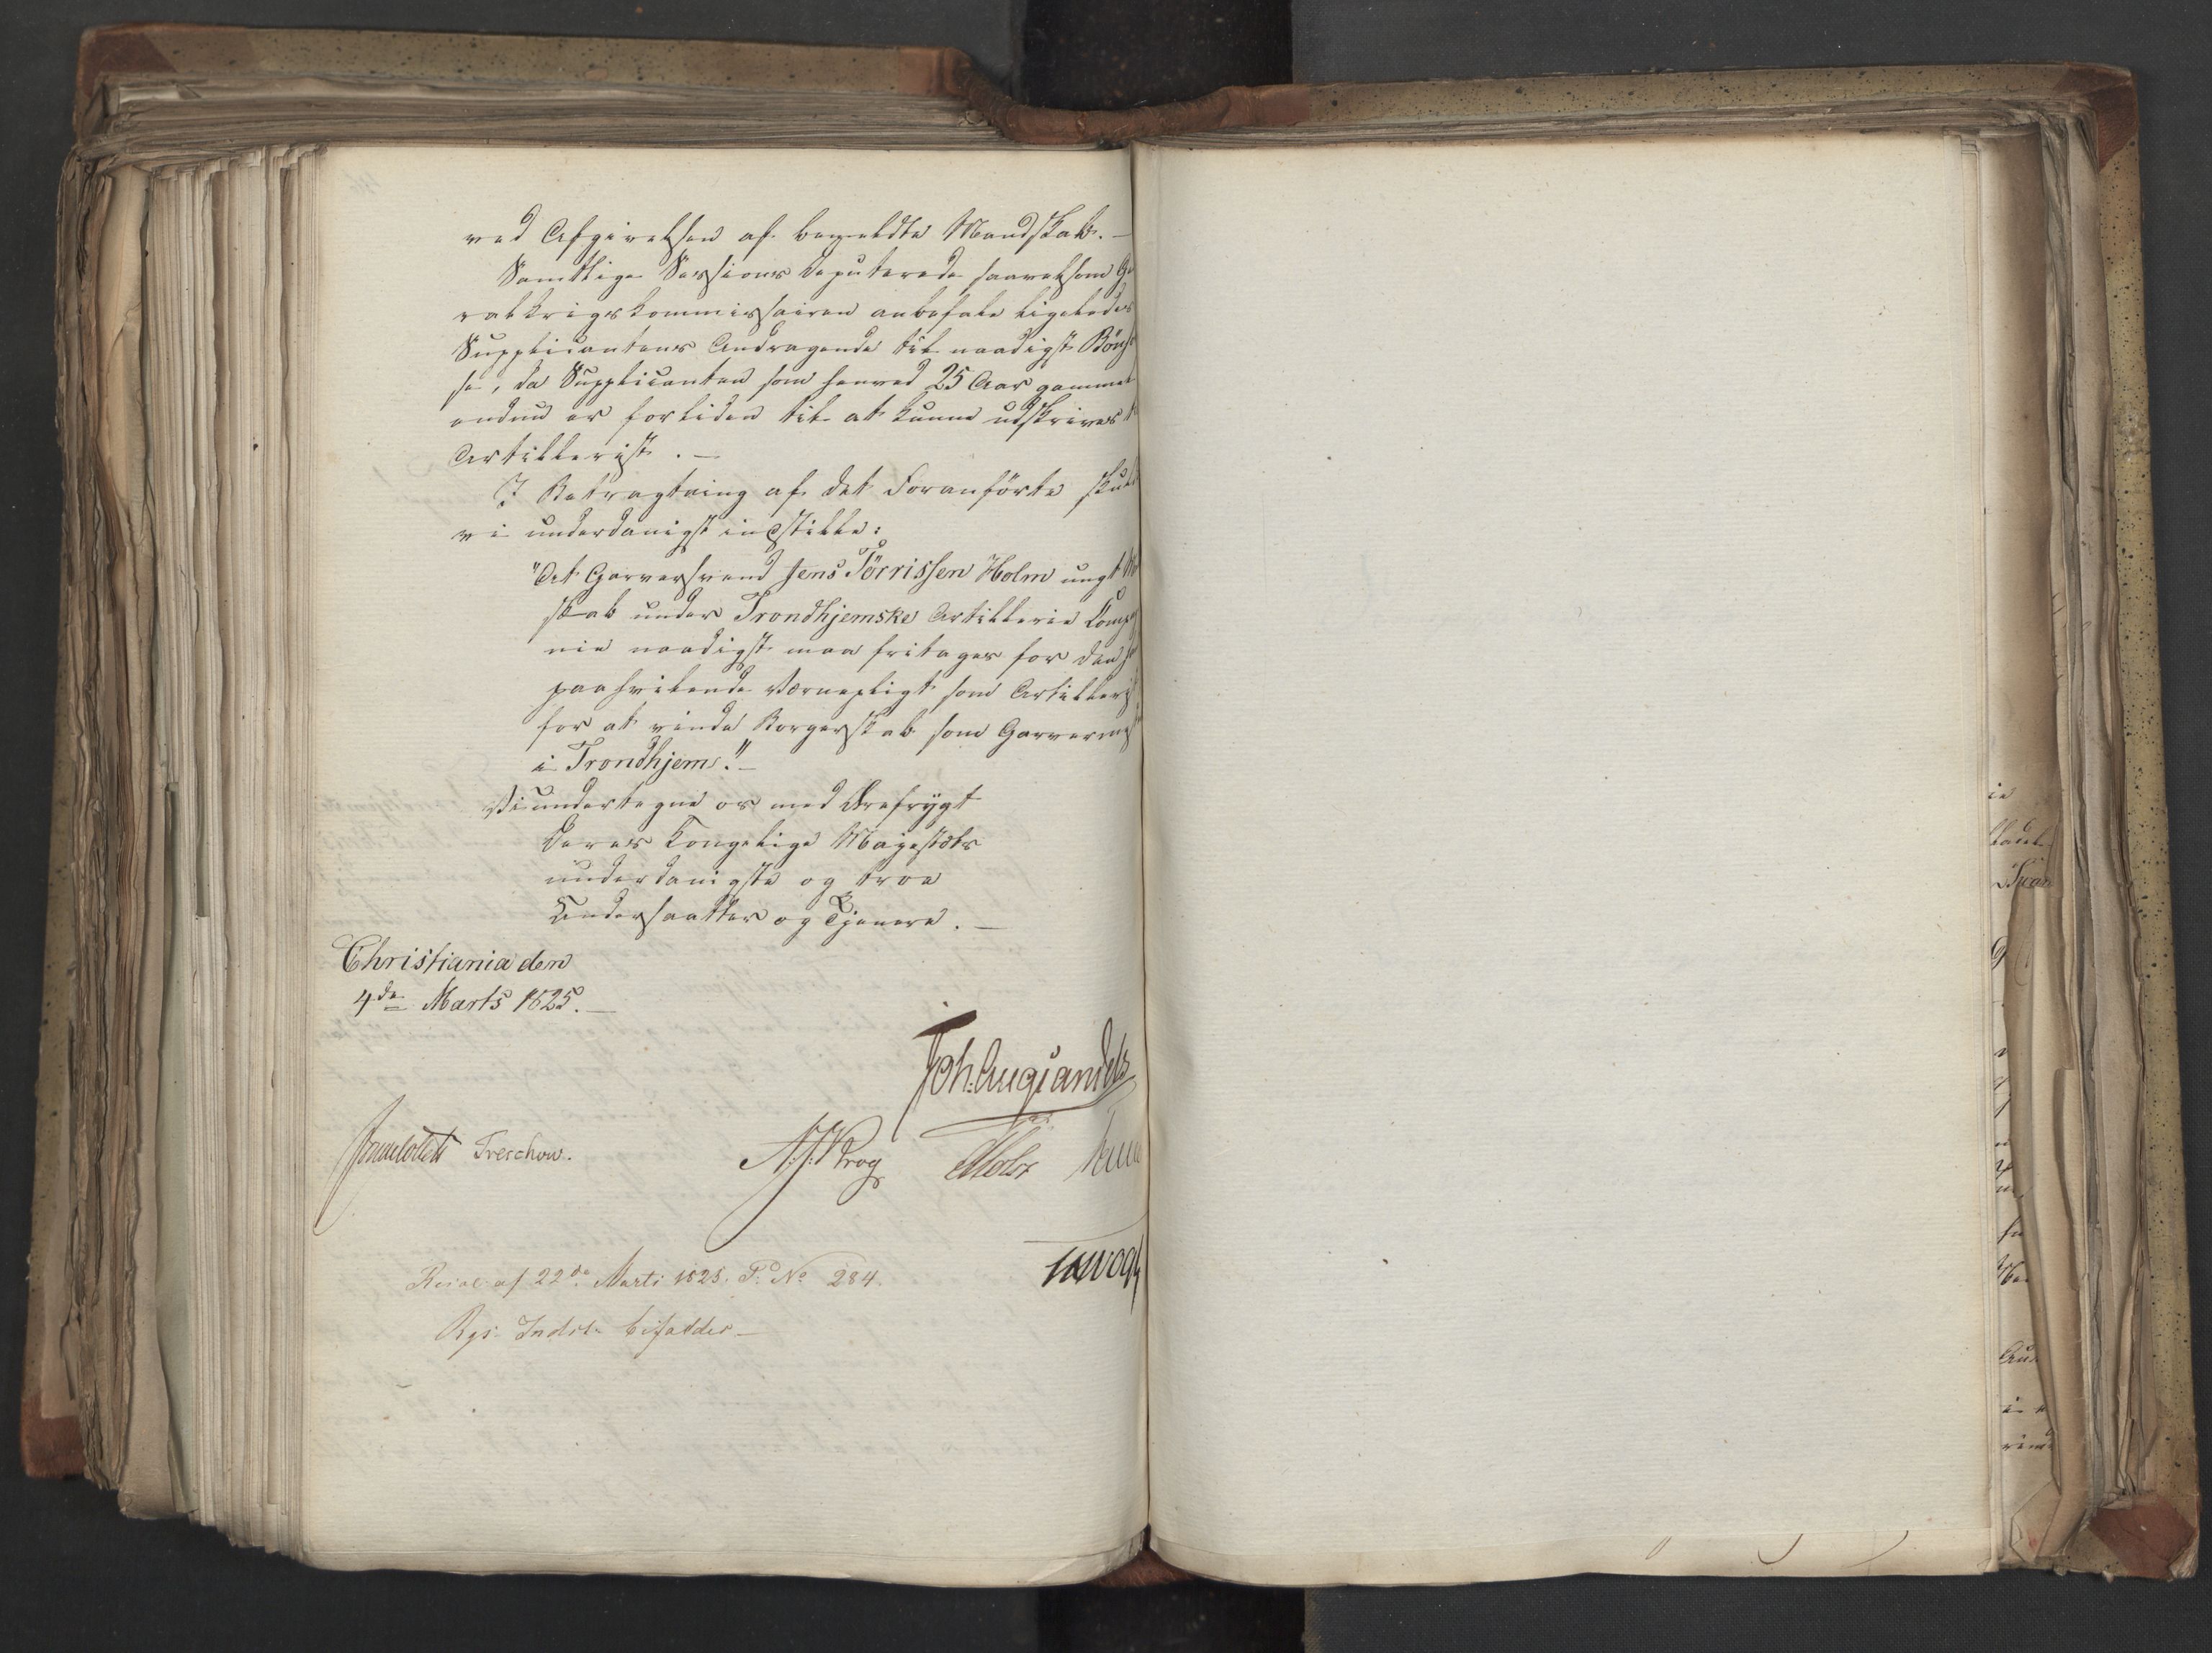 ved Afgivelsen af bemeldte Mandskab. —
Samtlige Sessions Deputerede saavelsom Ge
ralkrigskommissairen anbefale ligeledes
Supplicantens Andragende til naadigst Bönhö
se, da Supplicanten som henved 25 Aar gammel
endnu er forliden til at kunne udskrives t
Artillerist. —
I Betragtning af det Foranförte skulle
vi underdanigst indstille:
"At Garversvend Jens Törrissen Holm ungt M
skab under Trondhjemske Artillerie Compag
nie naadigst maa fritages for den h
paahvilende Værnepligt som Artillerist
for at vinde Borgerskab som Garvermest
i Trondhjem." —
Vi undertegne os med Ærefrygt
Deres Kongelige Majestæts
underdanigste og troe
Undersaatter og Tjenere. —
Christiania den
4de Marts 1825. —
Joh: Aug: Sandels
Jonas Collett Treschow. A. J. Krog Motz
Resol: af 22de Marts 1825. P: No 284.
Rgs. Indst: bifaldes —